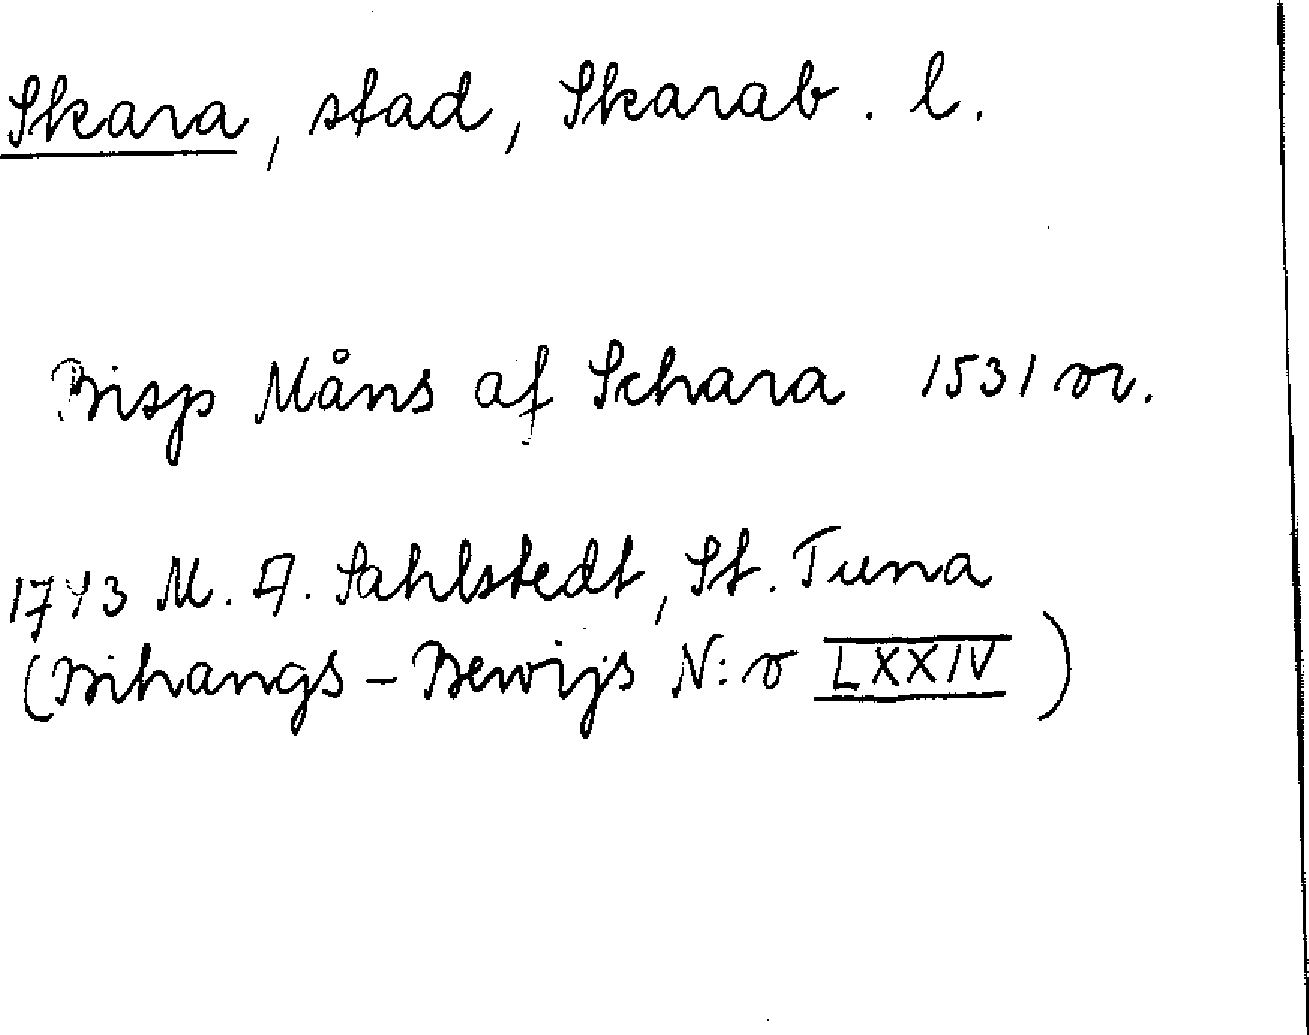 Skara, stad, Skarab. l.
Bisp Måns af Schara 1531 or.
1743 M. A. Sahlstedt, St. Tuna
(Bihangs-Bewijs N:o LXXIV)